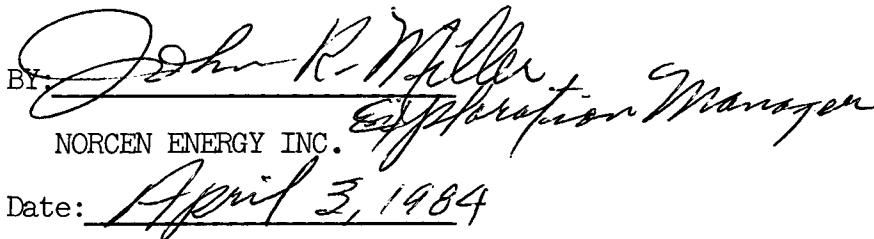 BY: John R. Miller
Exploration Manager
NORCEN ENERGY INC.
Date: April 3, 1984